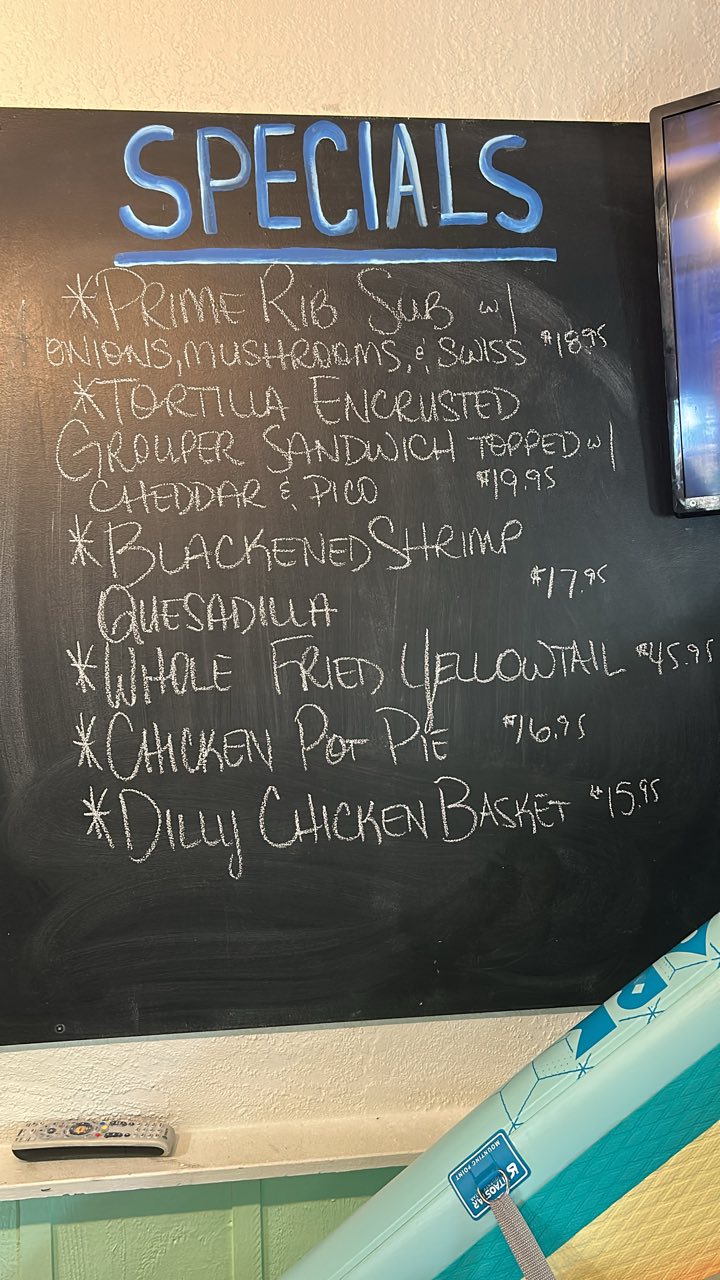 SPECIALS
*PRIME RIB SUB w/
ONIONS, MUSHROOMS, & SWISS $18.95
*TORTILLA ENCRUSTED
GROUPER SANDWICH TOPPED w/
CHEDDAR & PICO $19.95
*BLACKENED SHRIMP
QUESADILLA $17.95
*WHOLE FRIED YELLOWTAIL $45.95
*CHICKEN POT PIE $16.95
*DILLY CHICKEN BASKET $15.95
MOUNTING POINT